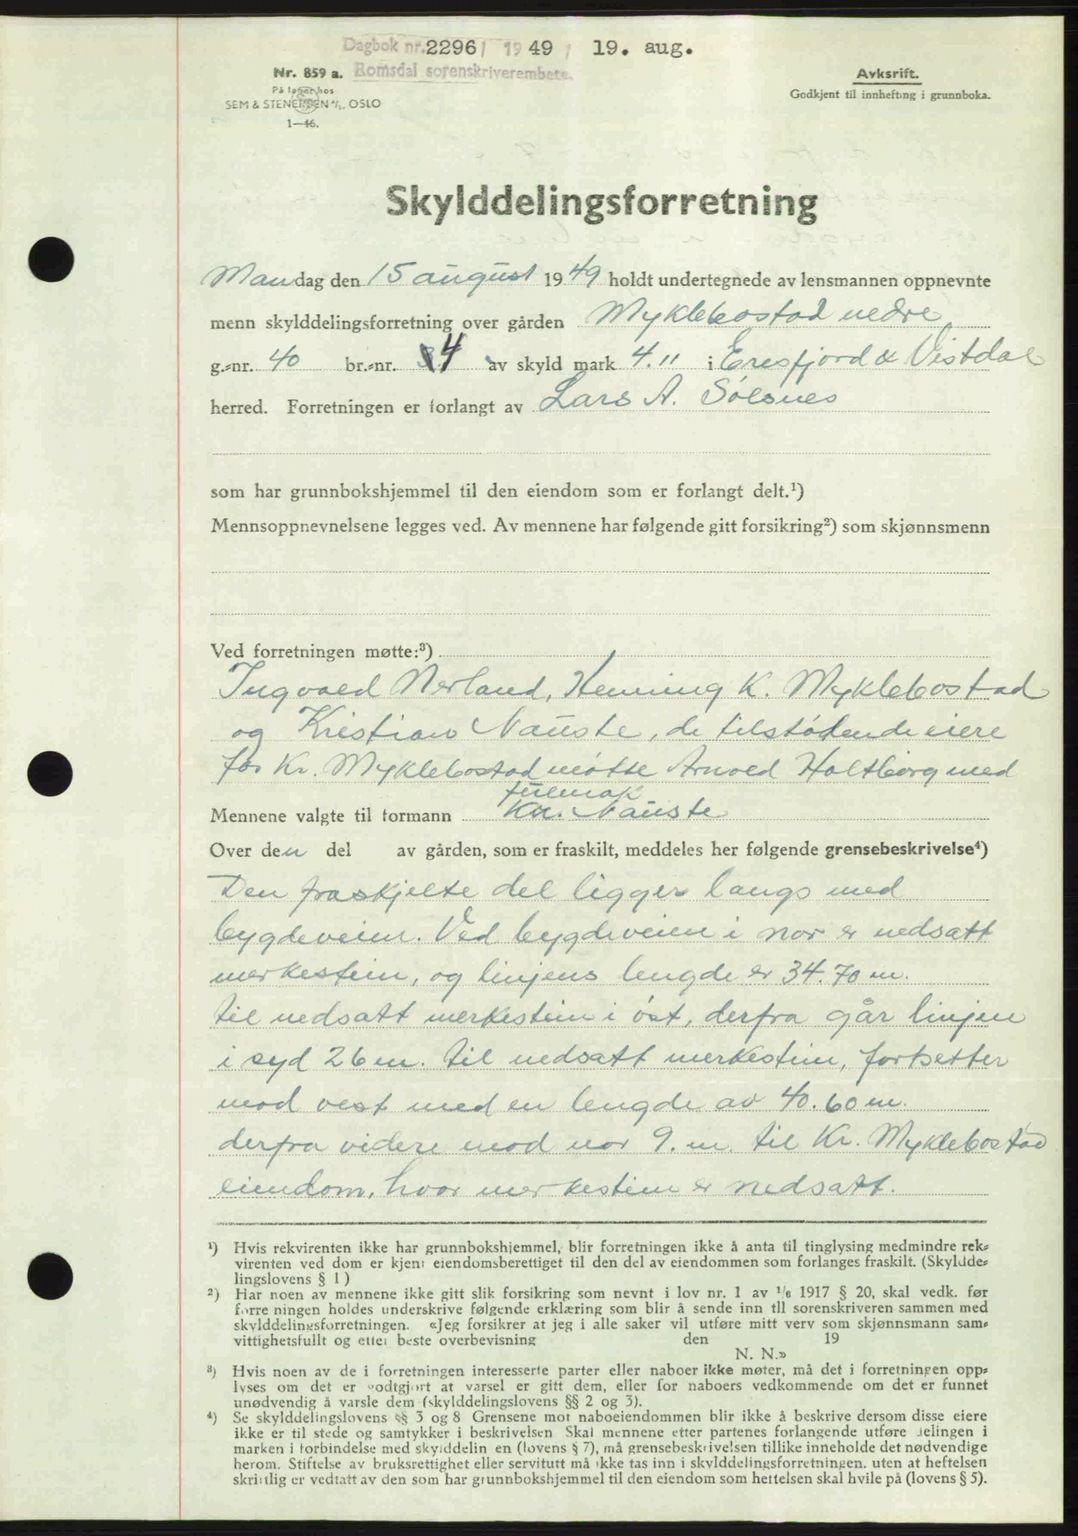 Dagbok nr. 2296 / 1949 / 19. aug.
Romsdal sorenskriverembete.
Nr. 859 a.
På lager hos
SEM & STENERSEN A/S. OSLO
1—46.
Avkskrift.
Godkjent til innhefting i grunnboka.
Skylddelingsforretning
Mandag den 15 august 1949 holdt undertegnede av lensmannen oppnevnte
menn skylddelingsforretning over gården Myklebostad nedre
g.-nr. 40 br.-nr. 4 av skyld mark 4.11 i Eresfjord & Vistdal
herred. Forretningen er forlangt av Lars A. Sølsnes
som har grunnbokshjemmel til den eiendom som er forlangt delt.¹)
Mennsoppnevnelsene legges ved. Av mennene har følgende gitt forsikring²) som skjønnsmenn
Ved forretningen møtte:³)
Ingvald Nerland, Henning K. Myklebostad
og Kristian Nauste, de tilstødende eiere
for Kr. Myklebostad møtte Arnold Holtborg med
fullmak
Mennene valgte til formann Kr. Nauste
Over den del av gården, som er fraskilt, meddeles her følgende grensebeskrivelse⁴)
Den fraskjelte del ligger langs med
bygdeveien. Ved bygdeveien i nor er nedsatt
merkestein, og linjens lengde er 34.70 m.
til nedsatt merkestein i øst, derfra går linjen
i syd 26 m. til nedsatt merkestein, fortsetter
mod vest med en lengde av 40.60 m.
derfra videre mod nor 9. m. til Kr. Myklebostad
eiendom, hvor merkestein er nedsatt.
¹) Hvis rekvirenten ikke har grunnbokshjemmel, blir forretningen ikke å anta til tinglysing medmindre rek-
virenten ved dom er kjent eiendomsberettiget til den del av eiendommen som forlanges fraskilt. (Skyldde-
lingslovens § 1)
²) Har noen av mennene ikke gitt slik forsikring som nevnt i lov nr. 1 av 1/6 1917 § 20, skal vedk. før
forretningen holdes underskrive følgende erklæring som blir å sende inn til sorenskriveren sammen med
skylddelingsforretningen. «Jeg forsikrer at jeg i alle saker vil utføre mitt verv som skjønnsmann sam-
vittighetsfullt og etter beste overbevisning den 19
N. N.»
³) Hvis noen av de i forretningen interesserte parter eller naboer ikke møter, må det i forretningen opp-
lyses om det er godtgjort at varsel er gitt dem, eller for naboers vedkommende om det er funnet
unødvendig å varsle dem (skylddelingslovens §§ 2 og 3).
⁴) Se skylddelingslovens §§ 3 og 8 Grensene mot naboeiendommen blir ikke å beskrive dersom disse eiere
ikke er til stede og samtykker i beskrivelsen Skal mennene etter partenes forlangende utføre delingen i
marken i forbindelse med skylddelin en (lovens § 7), må grensebeskrivelsen tillike inneholde det nødvendige
herom. Stiftelse av bruksrettighet eller servitutt må ikke tas inn i skylddelingsforretningen. uten at heftelsen
skriftlig er vedtatt av den som har grunnbokshjemmel til den eiendom som heftelsen skal hvile på (lovens § 5).